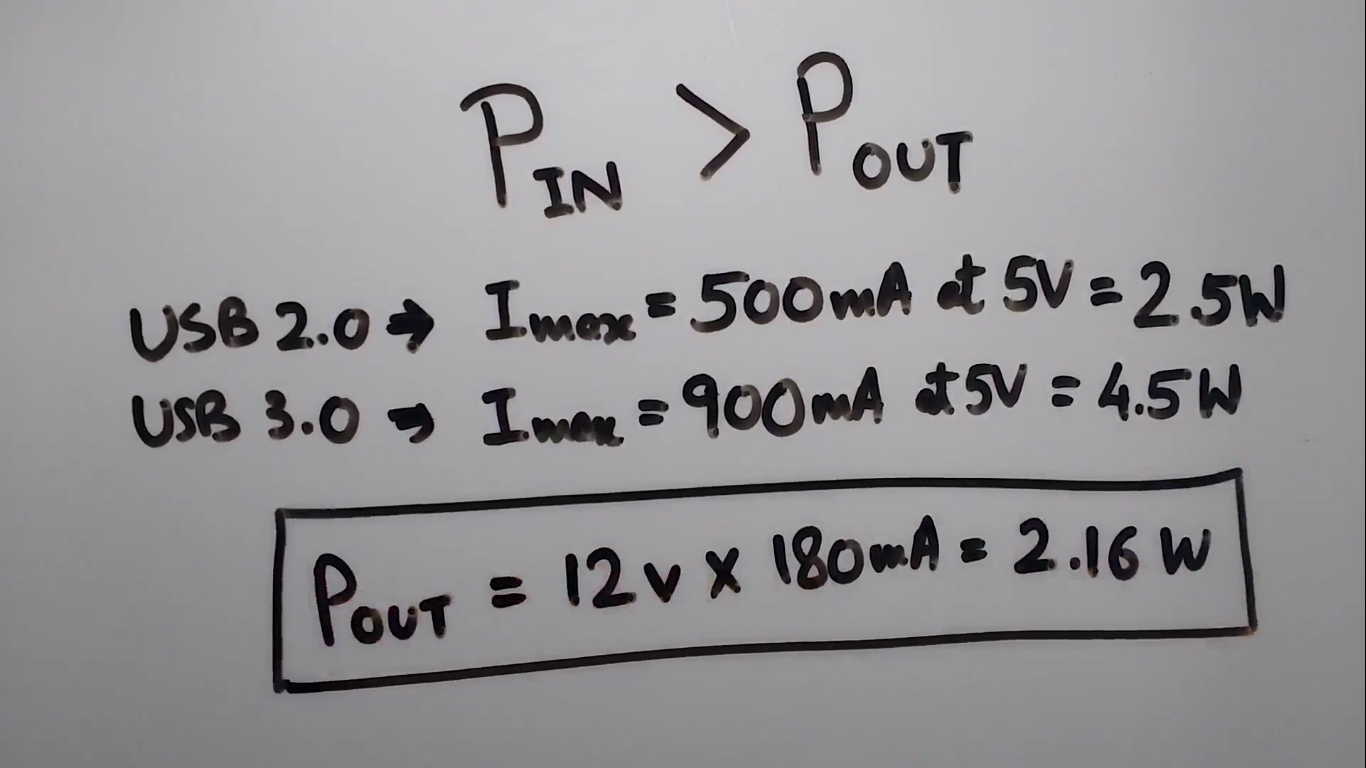 PIN > POUT
USB 2.0 → Imax = 500mA at 5V = 2.5W
USB 3.0 → Imax = 900mA at 5V = 4.5W
POUT = 12v x 180mA = 2.16 W